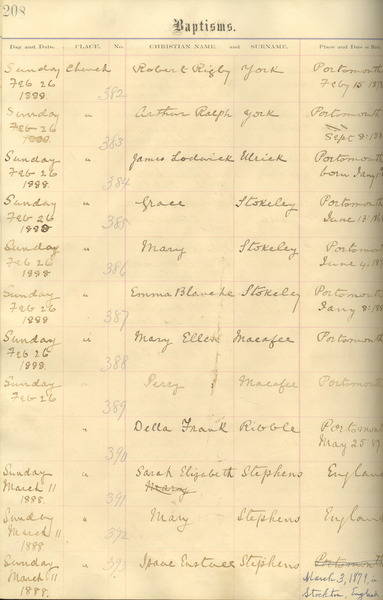 208
Baptisms.
Day and Date. PLACE. No. CHRISTIAN NAME. and SURNAME. Place and Date
Sunday Church Robert Rigby York Portsmouth
Feb 26 Feby 15
1888 382
Sunday " Arthur Ralph York Portsmouth
Feb 26
1888 383 Sept 8
Sunday " James Lodwick Ulrick Portsmouth
Feb 26 born Jany
1888 384
Sunday " Grace Stokeley Portsmouth
Feb 26 June 13
1888 385
Sunday " Mary Stokeley Portsmouth
Feb 26 June 4
1888 386
Sunday " Emma Blanche Stokeley Portsmouth
Feb 26 Jany 8
1888 387
Sunday " Mary Ellen Macafee Portsmouth
Feb 26
1888 388
Sunday " Percy Macafee Portsmouth
Feb 26
389
" Della Frank Ribble Portsmout
390 May 25
Sunday " Sarah Elizabeth Stephens England
March 11
1888. 391
Sunday " Mary Stephens England
March 11
1888 392
Sunday " Isaac Stephens Portsmouth
March 11 March 3, 1879, in
1888. Stockton, English